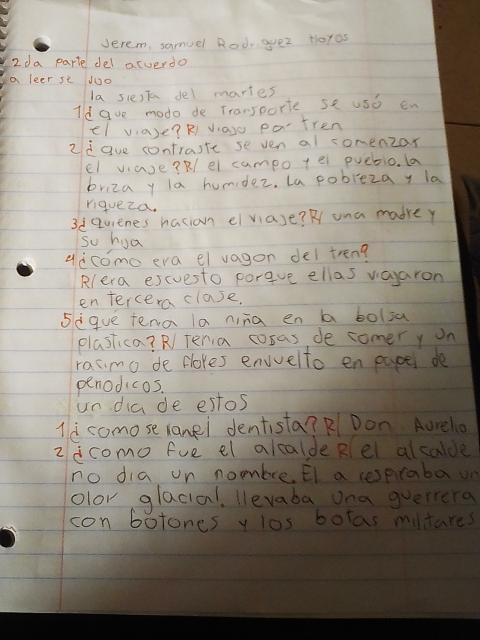 Jeremi samuel Rodriguez Hoyos
2da parte del acuerdo
a leer se dijo
la siesta del martes
1¿ que modo de transporte se usó en
el viaje? R/ viajo por tren
2¿ que contraste se ven al comenzar
el viaje? R/ el campo y el pueblo. la
briza y la humidez. La pobreza y la
riqueza.
3¿ quienes hacian el viaje? R/ una madre y
su hija
4¿ cómo era el vagon del tren?
R/ era escueto porque ellas viajaron
en tercera clase.
5¿ qué tenia la niña en la bolsa
plastica? R/ tenia cosas de comer y un
racimo de flores envuelto en papel de
periodicos.
un dia de estos
1¿ como se
el dentista? R/ Don Aurelio
2¿ como fue el alcalde R/ el alcalde
no dia un nombre. El a respiraba un
olor glacial. llevaba una guerrera
con botones y los botas militares